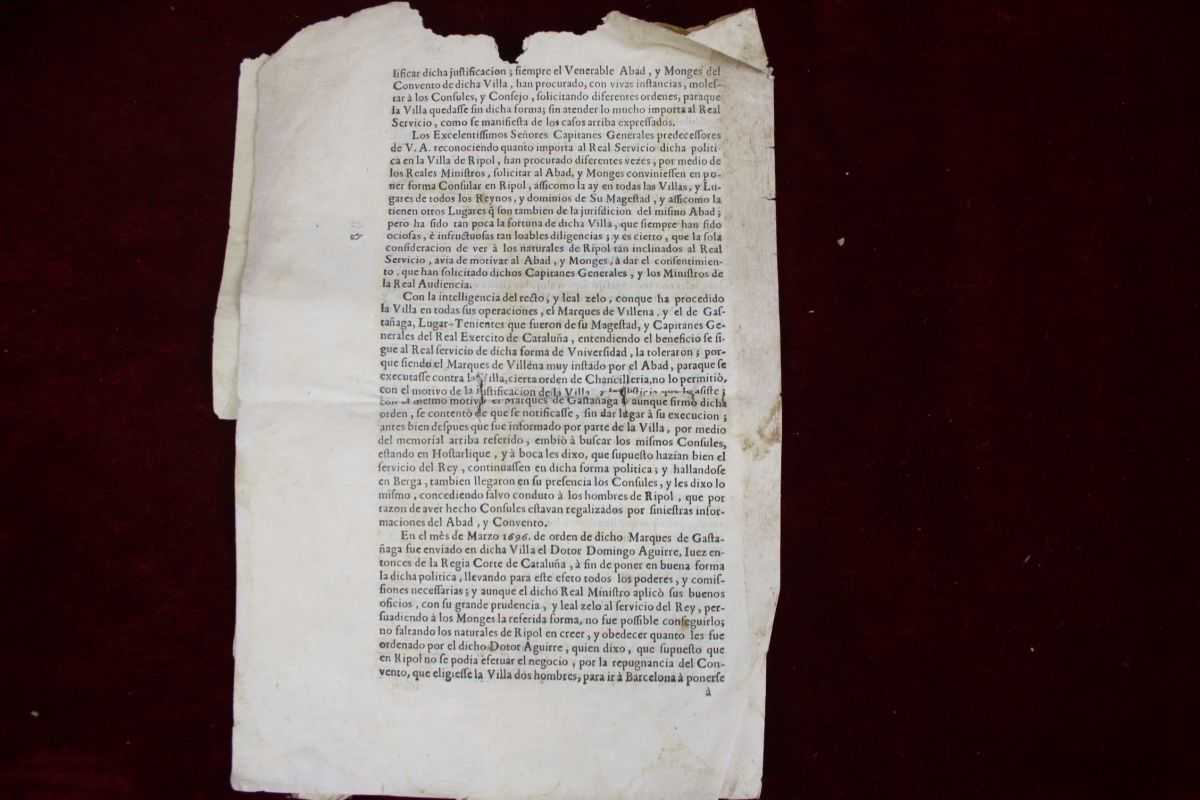 lificar dicha justificacion; siempre el Venerable Abad, y Monges del
Convento de dicha Villa, han procurado, con vivas instancias, moles-
tar à los Consules, y Consejo, solicitando diferentes ordenes, paraque
la Villa quedasse sin dicha forma; sin atender lo mucho importa al Real
Servicio, como se manifiesta de los casos arriba expressados.
Los Excelentissimos Señores Capitanes Generales predecessores
de V. A. reconociendo quanto importa al Real Servicio dicha politi
ca en la Villa de Ripol, han procurado diferentes vezes, por medio de
los Reales Ministros, solicitar al Abad, y Monges conviniessen en po-
ner forma Consular en Ripol, assicomo la ay en todas las Villas, y Lu-
gares de todos los Reynos, y dominios de Su Magestad, y assicomo la
tienen otros Lugares q̃ son tambien de la jurisdicion del mismo Abad;
pero ha sido tan poca la fortuna de dicha Villa, que siempre han sido
ociosas, è infructuosas tan loables diligencias; y es cierto, que la sola
consideracion de ver à los naturales de Ripol tan inclinados al Real
Servicio, avia de motivar al Abad, y Monges, à dar el consentimien-
to, que han solicitado dichos Capitanes Generales, y los Ministros de
la Real Audiencia.
Con la intelligencia del recto, y leal zelo, conque ha procedido
la Villa en todas sus operaciones, el Marques de Villena, y el de Gas-
tañaga, Lugar-Tenientes que fueron de su Magestad, y Capitanes Ge-
nerales del Real Exercito de Cataluña, entendiendo el beneficio se si-
gue al Real servicio de dicha forma de Vniversidad, la toleraron; por-
que siendo el Marques de Villena muy instado por el Abad, paraque se
executasse contra la Villa, cierta orden de Chancilleria, no lo permitiò,
con el motivo de la justificacion de la Villa, y la justicia que la assiste;
con el mesmo motivo el Marques de Gastañaga aunque firmò dicha
orden, se contentò de que se notificasse, sin dar lugar à su execucion;
antes bien despues que fue informado por parte de la Villa, por medio
del memorial arriba referido, embiò à buscar los mismos Consules,
estando en Hostarlique, y à boca les dixo, que supuesto hazian bien el
servicio del Rey, continuassen en dicha forma politica; y hallandose
en Berga, tambien llegaron en su presencia los Consules, y les dixo lo
mismo, concediendo salvo conduto à los hombres de Ripol, que por
razon de aver hecho Consules estavan regalizados por siniestras infor-
maciones del Abad, y Convento.
En el mès de Marzo 1696. de orden de dicho Marques de Gasta-
ñaga fue enviado en dicha Villa el Dotor Domingo Aguirre, Iuez en-
tonces de la Regia Corte de Cataluña, à fin de poner en buena forma
la dicha politica, llevando para este efeto todos los poderes, y comis-
siones necessarias; y aunque el dicho Real Ministro aplicò sus buenos
oficios, con su grande prudencia, y leal zelo al servicio del Rey, per-
suadiendo à los Monges la referida forma, no fue possible conseguirlo;
no faltando los naturales de Ripol en creer, y obedecer quanto les fue
ordenado por el dicho Dotor Aguirre, quien dixo, que supuesto que
en Ripol no se podia efetuar el negocio, por la repugnancia del Con-
vento, que eligiesse la Villa dos hombres, para ir à Barcelona à ponerse
à